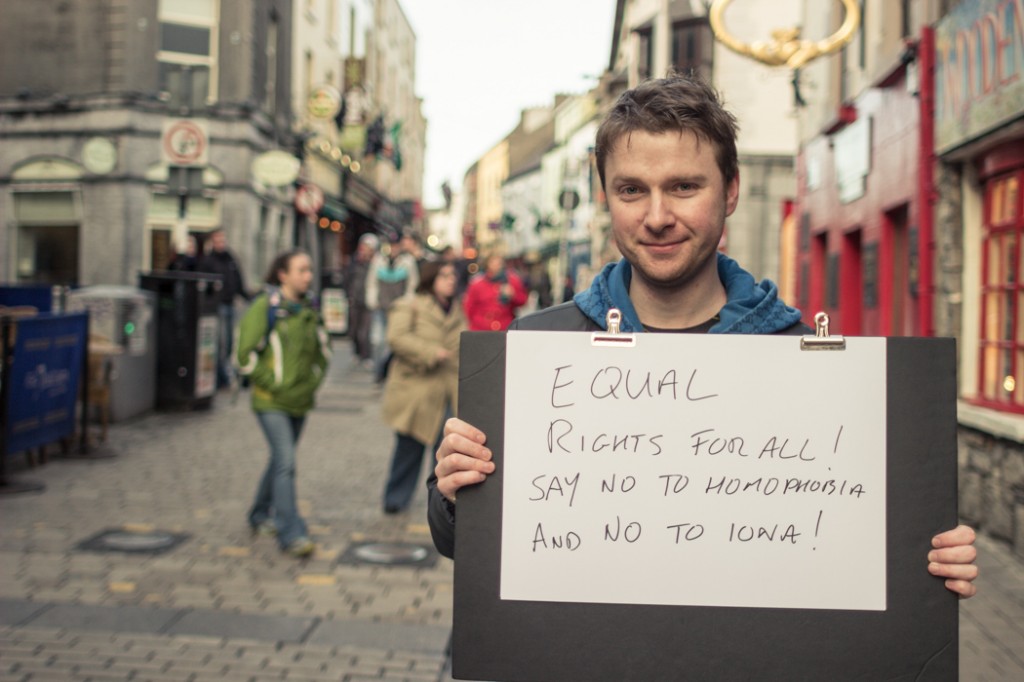 EQUAL
RIGHTS FOR ALL!
SAY NO TO HOMOPHOBIA
AND NO TO IONA!